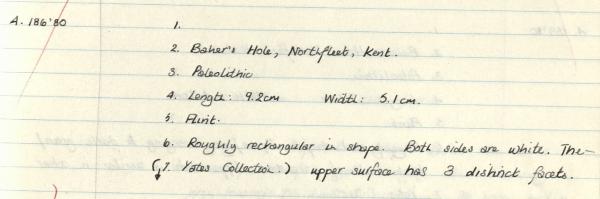 A. 186'80 1.
2. Baker's Hole, Northfleet, Kent.
3. Paleolithic
4. Length: 9.2cm Width: 5.1cm.
5. Flint.
6. Roughly rectangular in shape. Both sides are white. The-
(7. Yates Collection.) upper surface has 3 distinct facets.